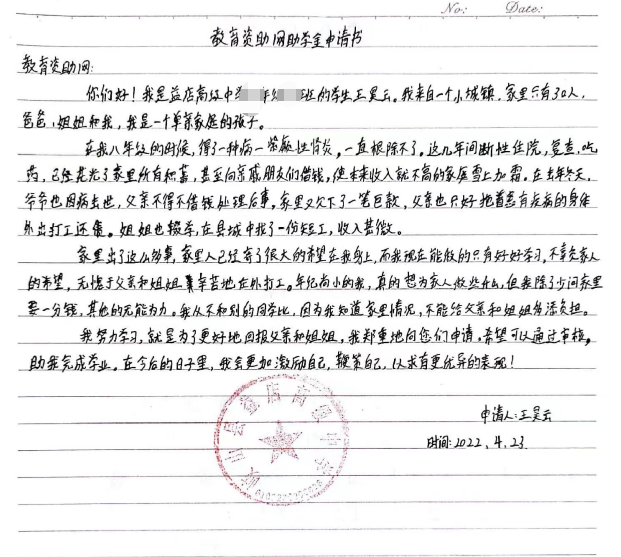 No:
Date:
教育资助网助学金申请书
教育资助网:
你们好！我是益店高级中 班的学生王昊云。我来自一个小城镇，家里只有3口人，
爸爸，姐姐和我，我是一个单亲家庭的孩子。
在我八年级的时候，得了一种病—紫癜性肾炎，一直根除不了。这几年间断性住院，复查，吃
药，已经花光了家里所有积蓄，甚至向亲戚朋友们借钱，使本来收入就不高的家庭雪上加霜。在去年冬天，
爷爷也因病去世，父亲不得不借钱处理后事，家里又欠下了一笔巨款，父亲也只好拖着患有疾病的身体
外出打工还债。姐姐也辍学，在县城中找了一份短工，收入甚微。
家里出了这么多事，家里人已经寄了很大的希望在我身上，而我现在能做的只有好好学习，不辜负家人
的希望，无愧于父亲和姐姐辛苦地在外打工。年纪尚小的我，真的想为家人做些什么，但我除了少问家里
要一分钱，其他的无能为力。我从不和别的同学比，因为我知道家里情况，不能给父亲和姐姐多添负担。
我努力学习，就是为了更好地回报父亲和姐姐，我郑重地向您们申请。希望可以通过审核，
助我完成学业。在今后的日子里，我会更加激励自己，鞭策自己，以求有更优异的表现！
岐山县益店高级中学
申请人：王昊云
时间：2022.4.23.